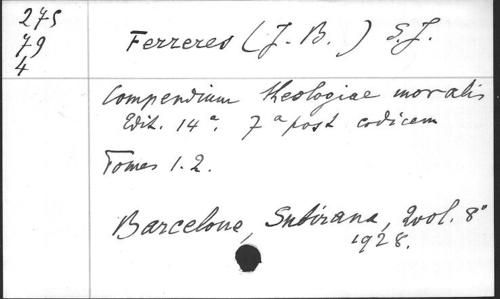 275
79
4
Ferreres (J. B.) S.J.
Compendium theologiae moralis
Edit. 14ª. 7ª post codicem
Tomes 1.2.
Barcelone, Subirana, 2 vol. 8°
1928.